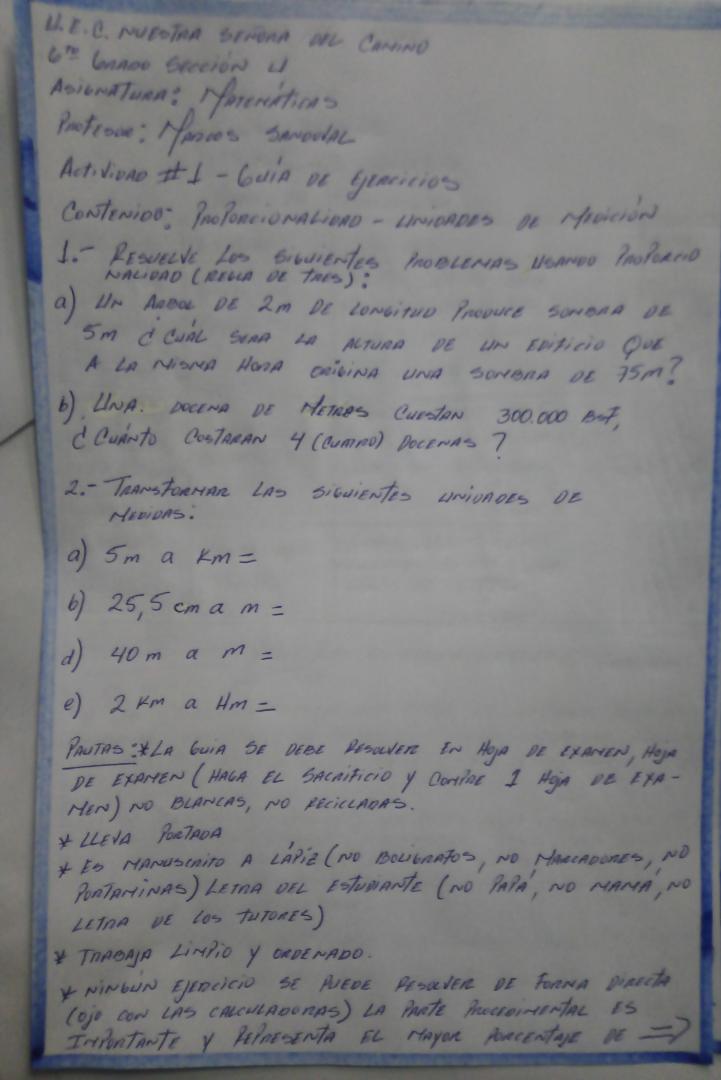 U.E.C. NUESTRA SEÑORA DEL CAMINO
6to GRADO SECCIÓN U
ASIGNATURA: MATEMÁTICAS
PROFESOR: MARCOS SANDOVAL
ACTIVIDAD #1 - GUÍA DE EJERCICIOS
CONTENIDO: PROPORCIONALIDAD - UNIDADES DE MEDICIÓN
1.- RESUELVE LOS SIGUIENTES PROBLEMAS USANDO PROPORCIO
NALIDAD (REGLA DE TRES):
a) UN ARBOL DE 2m DE LONGITUD PRODUCE SOMBRA DE
5m ¿CUÁL SERA LA ALTURA DE UN EDIFICIO QUE
A LA MISMA HORA ORIGINA UNA SOMBRA DE 75m?
b) UNA. DOCENA DE METRAS CUESTAN 300.000 BsF,
¿CUÁNTO COSTARAN 4 (CUATRO) DOCENAS?
2.- TRANSFORMAR LAS SIGUIENTES UNIDADES DE
MEDIDAS:
a) 5m a Km =
b) 25,5 cm a m =
d) 40 m a m =
e) 2 Km a Hm =
PAUTAS: * LA GUIA SE DEBE RESOLVER EN HOJA DE EXAMEN, HOJA
DE EXAMEN (HAGA EL SACRIFICIO Y COMPRE 1 HOJA DE EXA-
MEN) NO BLANCAS, NO RECICLADAS.
* LLEVA PORTADA
* ES MANUSCRITO A LÁPIZ (NO BOLIGRAFOS, NO MARCADORES, NO
PORTAMINAS) LETRA DEL ESTUDIANTE (NO PAPÁ, NO MAMÁ, NO
LETRA DE LOS TUTORES)
* TRABAJA LIMPIO Y ORDENADO.
* NINGÚN EJERCICIO SE PUEDE RESOLVER DE FORMA DIRECTA
(OJO CON LAS CALCULADORAS) LA PARTE PROCEDIMENTAL ES
IMPORTANTE Y REPRESENTA EL MAYOR PORCENTAJE DE ⇒